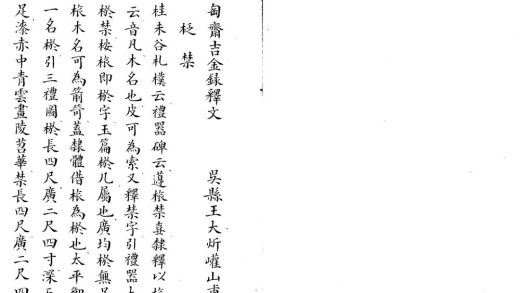 匋齋吉金錄釋文　吳縣王大炘巏山甫
柉禁
桂未谷札樸云禮器碑云籩柉禁壺隸釋以柉
云音凡木名也皮可為索又釋禁字引禮器
柉禁桉柉即棜字玉篇棜几屬也廣均棜無足
柉木名可為箭笴蓋隸體借柉為棜也太平御
一名棜引三禮圖棜長四尺廣二尺四寸深五
足漆赤中青雲畫陵苕華禁長四尺廣二尺四